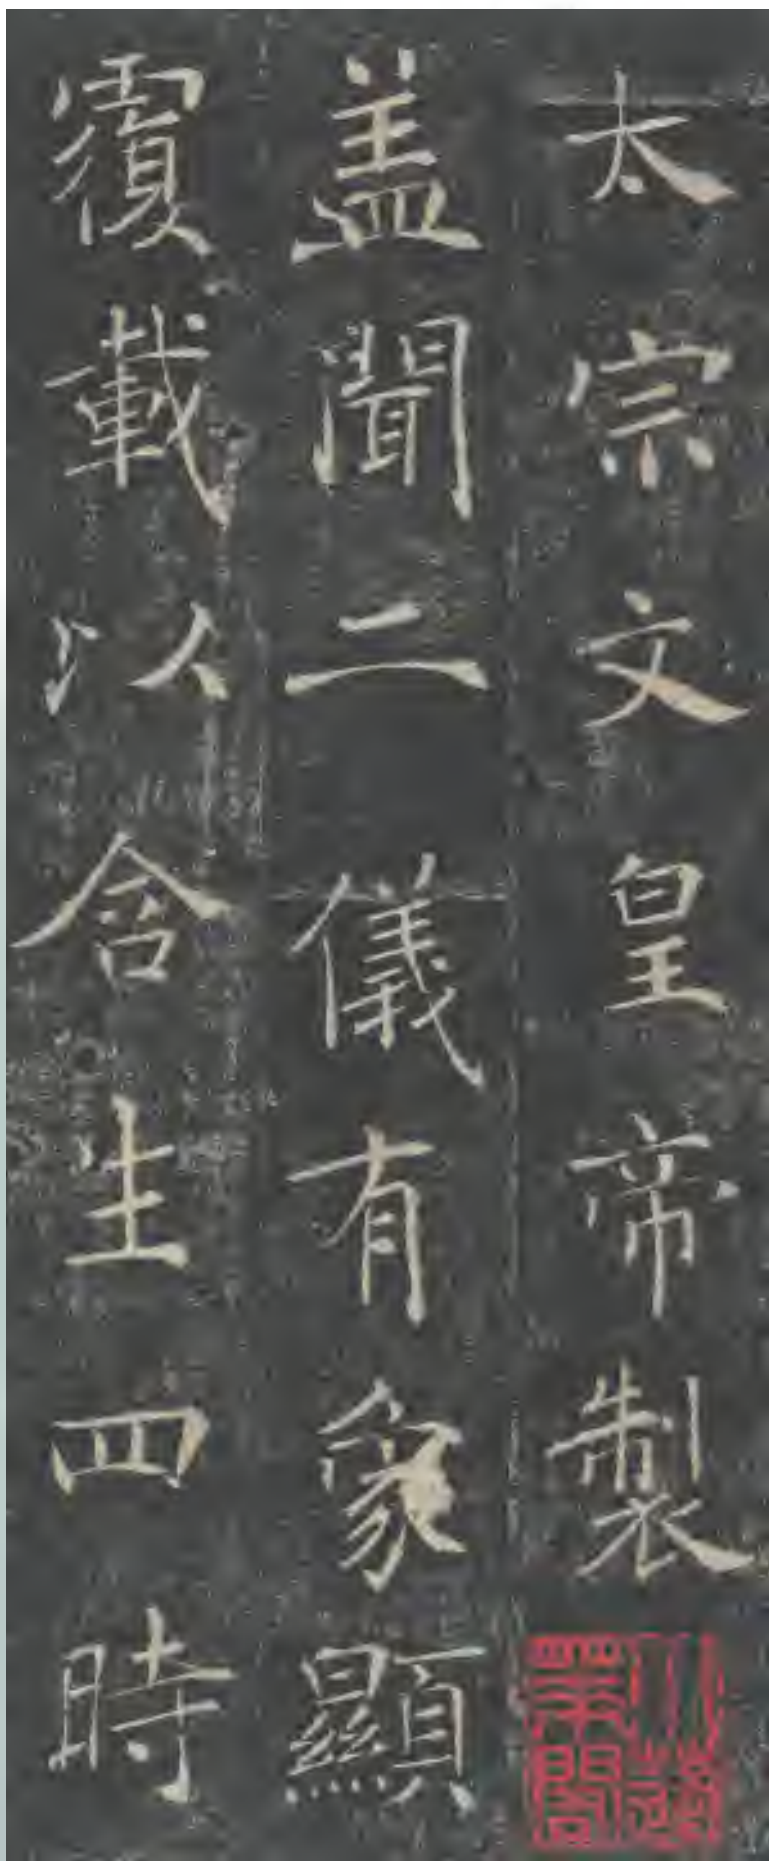 太宗文皇帝製
盖聞二儀有象顯
覆載以含生四時